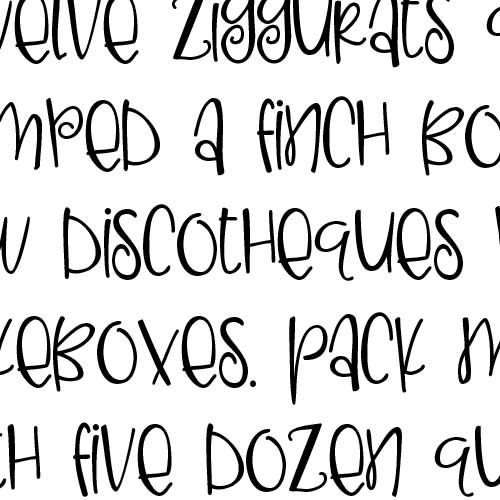 elve ziggurats
mped a finch bo
w discotheques
keboxes. Pack m
th five dozen qu